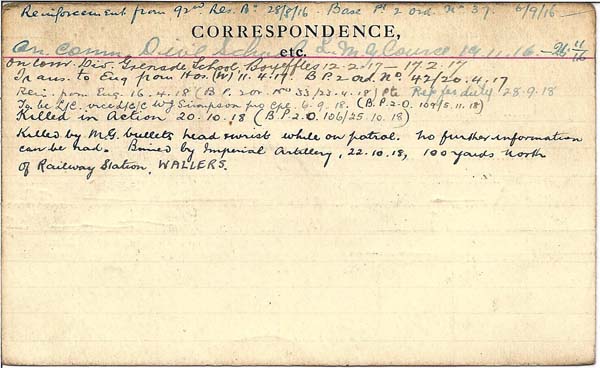 Reinforcement from 92nd Res. Bn 28/8/16. Base Pt 2 ord. No 37. 6/9/16
CORRESPONDENCE,
etc.
On comm. Divil School L M G Course 19.11.16. - 26.11/16
On Com. Div. Grenade School, Boyeffles 12.2.17 - 17.2.17
Trans. to Eng from Hos. (W) 11.4.17. B.P. 2 ord. No. 42/20.4.17
Rein. from Eng. 16.4.18 (B.P. 2 or. No 33/23.4.18) Pte Rep for duty 28.9.18
To be L/C. vice L/C WJ Simpson pro Cpl. 6.9.18. (B.P. 2.O. 109/5.11.18)
Killed in Action 20.10.18 (B.P. 2.O. 106/25.10.18)
Killed by M.G. bullets head & wrist while on patrol. No further information
can be had. Buried by Imperial Artillery, 22.10.18, 100 yards North
of Railway Station, WALLERS.